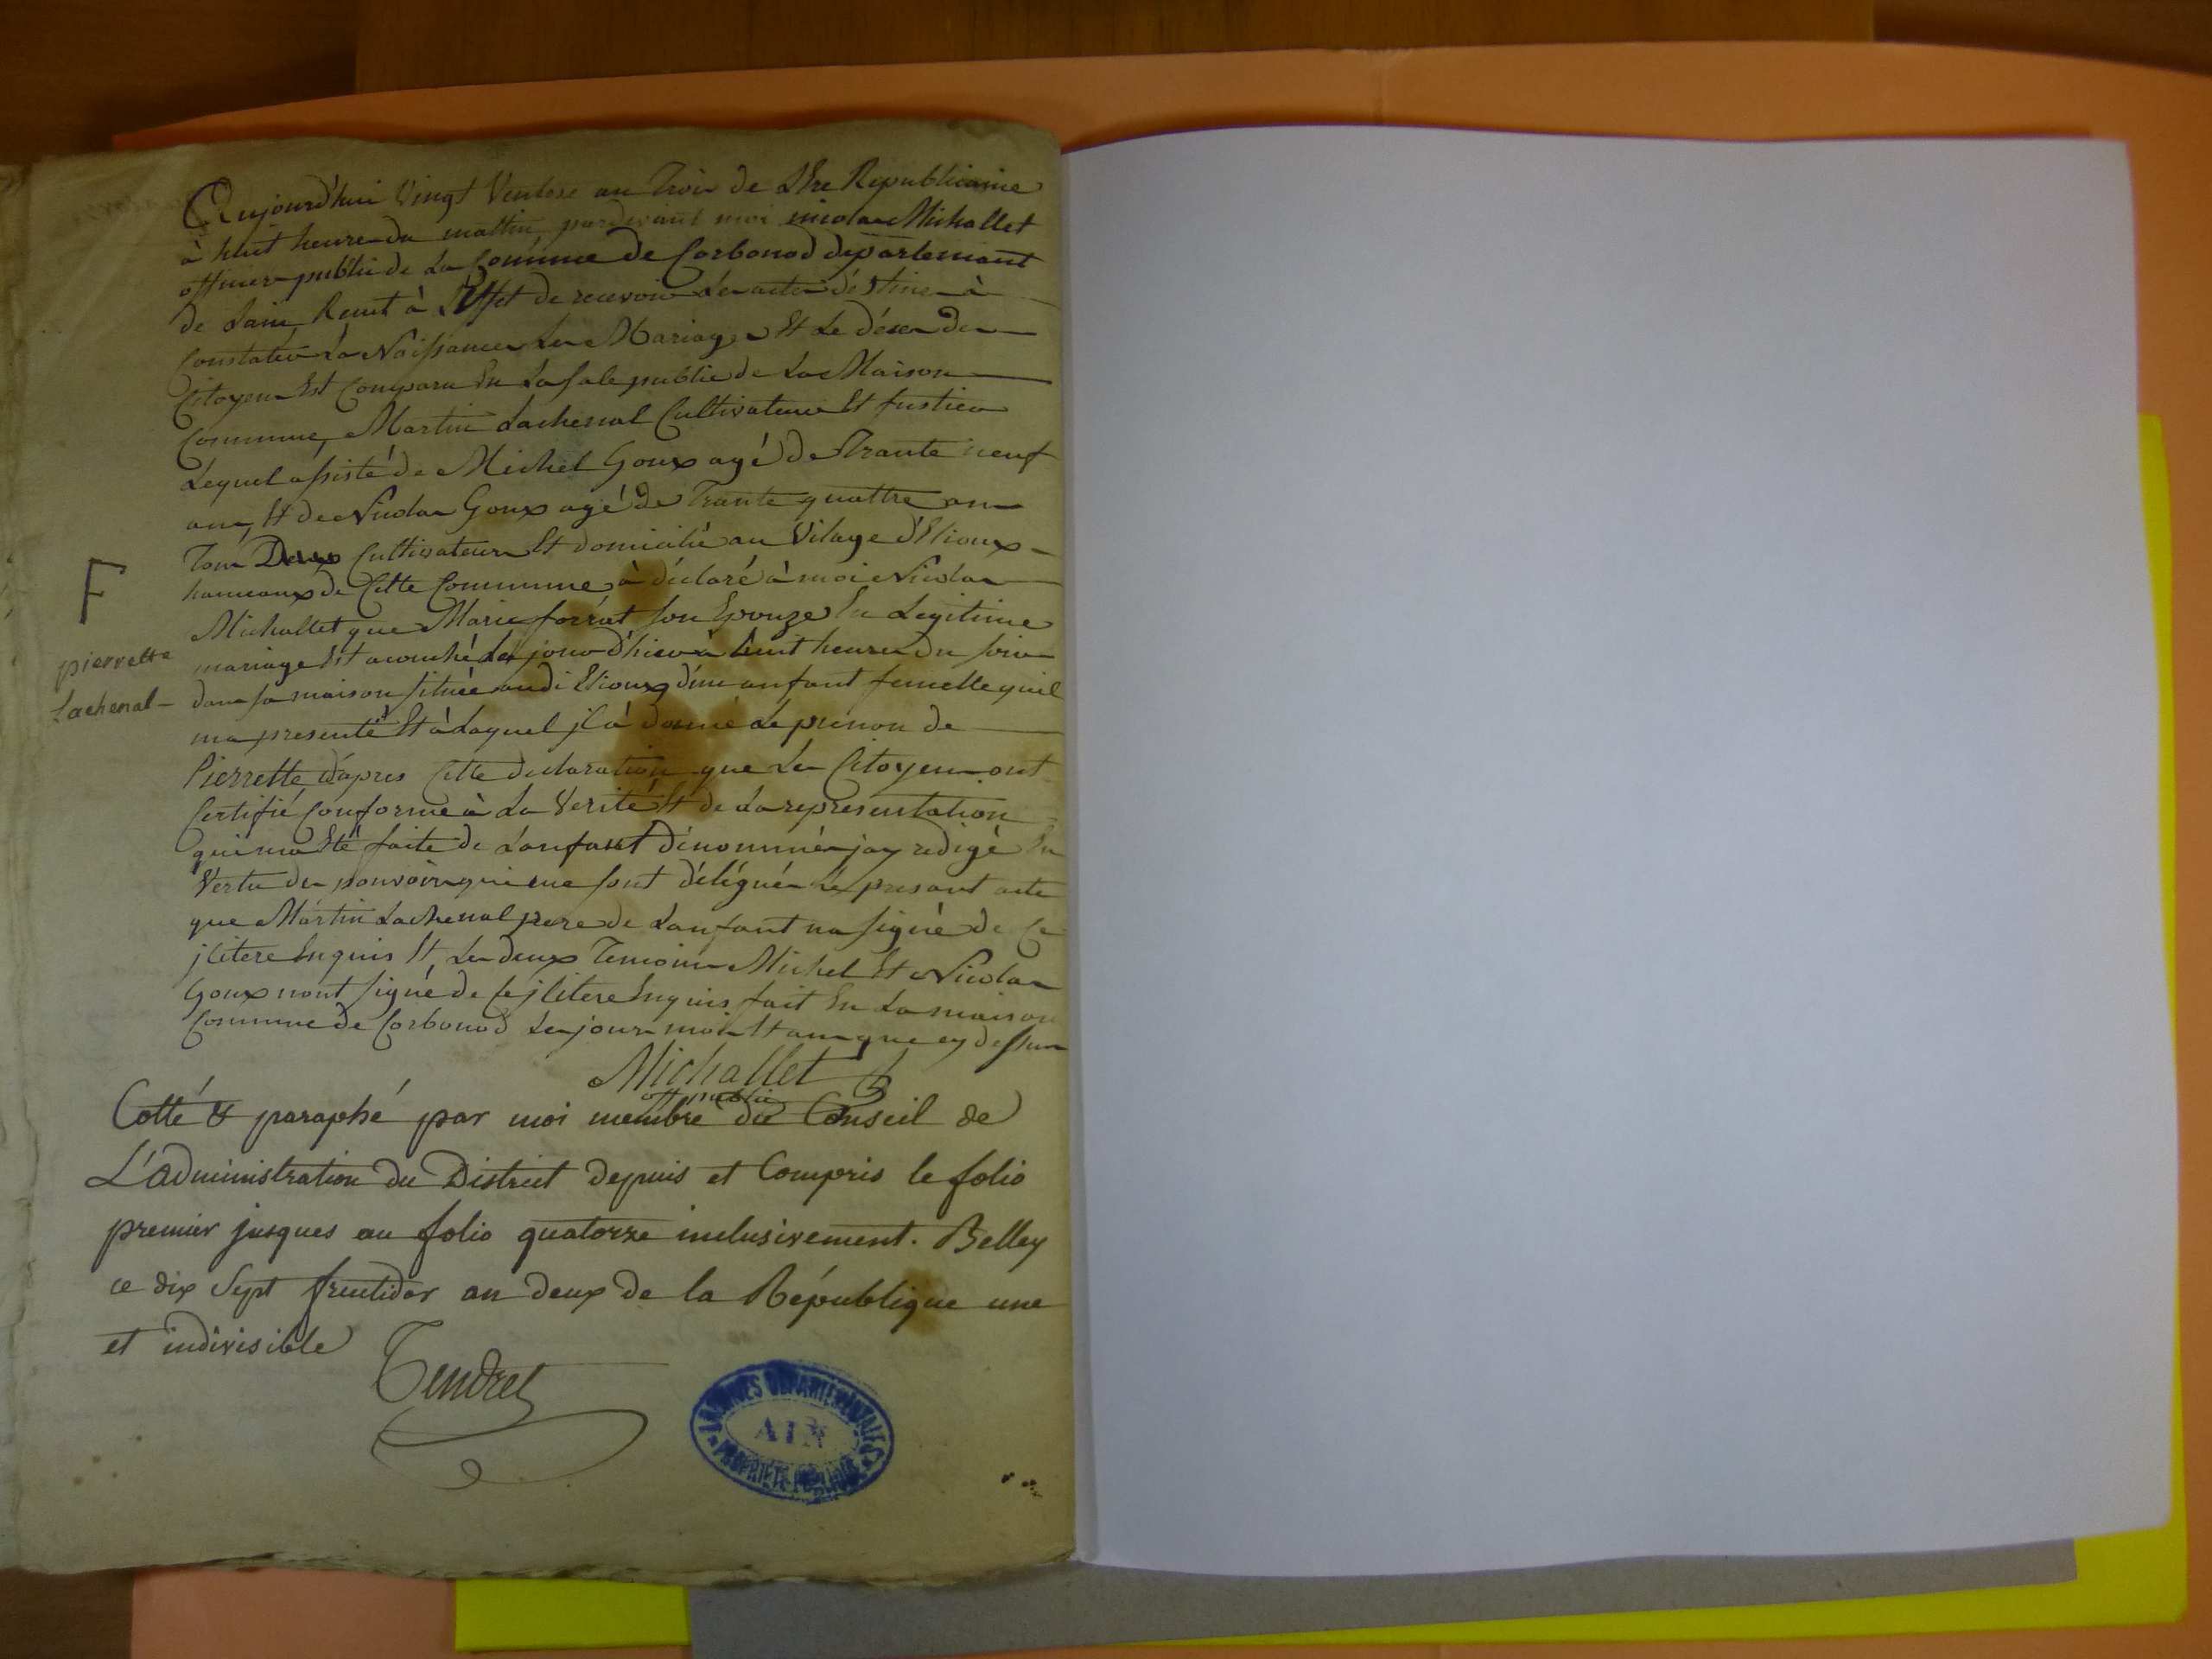 Aujourd'hui Vingt Ventose an Trois de L'Ere Republicaine
à huit heures du mattin pardevant moi nicolas Michallet
officier public de La Commune de Corbonod departemant
de Lain Reuut à L'Effet de recevoir Les actes déstines à
Constater La Naissances Les Mariages Et Le décès des
Citoyens Est Comparu En La sale public de La Maison
Commune, Martin Lachenal Cultivateur Et fustier
Lequel assisté de Michel Goux agé de Trante neuf
ans, Et de Nicolas Goux agé de Trante quattre ans
Tous Deux Cultivateurs Et domicilié au Vilage d'Elioux
hameaux de Cette Commune à déclaré à moi Nicolas
Michallet que Marie forrat son Epouze En Legitime
mariage Est acouché Le jour d'hier à huit heures du soir
F
pierrette
Lachenal
dans sa maison située audi Elioux d'un anfant femelle quil
ma presenté Et à Laquel jl à donné Le prénon de
Pierrette d'apres Cette declaration que Les Citoyens ont
Certifié Conforme à La Verité Et de La representation
qui ma Eté faite de L'anfant dénommée jay redigé En
Vertu des pouvoirs qui me sont délégués Le presant acte
que Martin Lachenal pere de Lanfant na signé de Ce
jlitere Enquis Et Les deux Temoins Michel Et Nicolas
Goux nont signé de Ce jlitere Enquis fait En La maison
Commune de Corbonod Les jour mois Et an que cy dessus
Michallet
off public
Cotté & paraphé par moi membre du Conseil de
L'administration du District depuis et Compris le folio
premier jusques au folio quatorze inclusivement. Belley
ce dix Sept fructidor an deux de la République une
et indivisible
Tendret
ARCHIVES DÉPARTEMENTALES
AIN
PROPRIÉTÉ PUBLIQUE